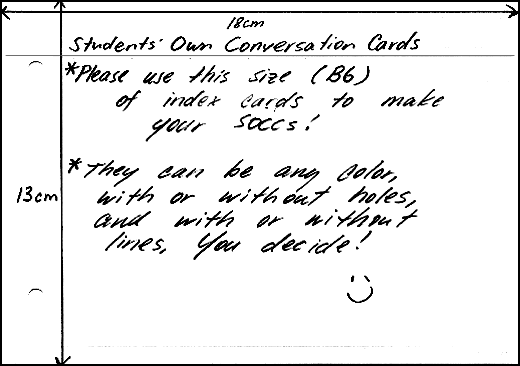 18cm
Students' Own Conversation Cards
*Please use this size (B6)
of index cards to make
your SOCCs!
*They can be any color,
13cm
with or without holes,
and with or without
lines, You decide!